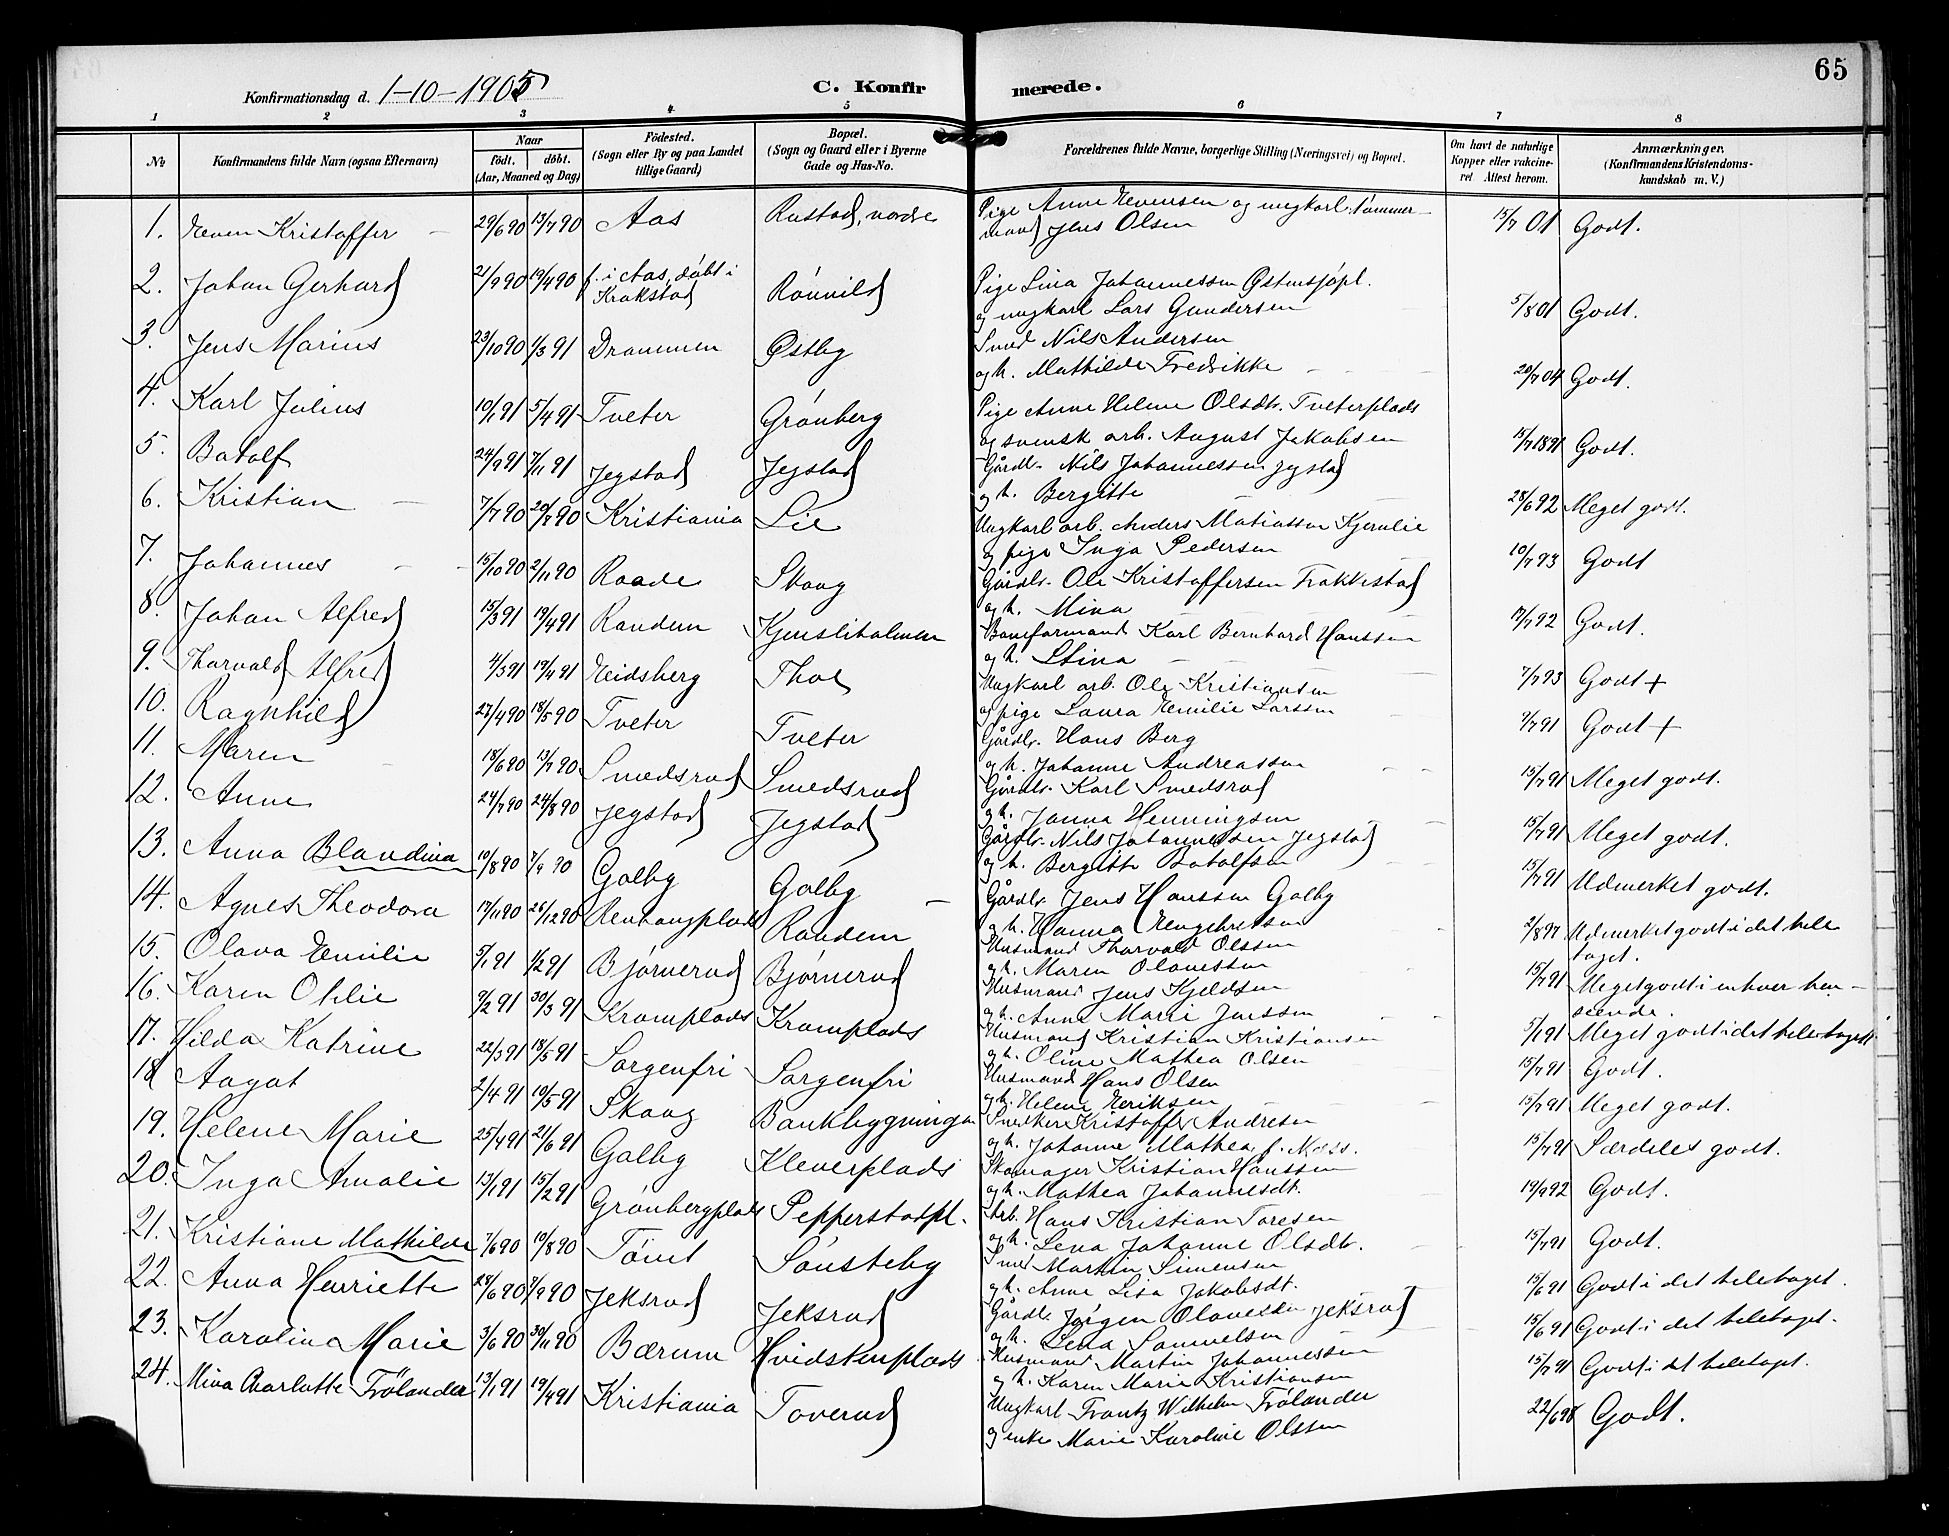 65
Konfirmationsdag d. 1-10-1905
C. Konfirmerede.
1 2 3 4 5 6 7 8
No
Konfirmandens fulde Navn (ogsaa Efternavn)
Naar født. døbt. (Aar, Maaned og Dag)
Fødested. (Sogn eller By og paa Landet tillige Gaard)
Bopæl. (Sogn og Gaard eller i Byerne Gade og Hus-No.
Forældrenes fulde Navne, borgerlige Stilling (Næringsvei) og Bopæl.
Om havt de naturlige Kopper eller vakcineret Attest herom.
Anmærkninger. (Konfirmandens Kristendomskundskab m. V.)
1. Even Kristoffer 29/6 90 13/7 90 Aas Rustad, nordre Pige Anne Evensen og ungkarl, tømmermand Jens Olsen 15/7 01 Godt.
2. Johan Gerhard 21/9 90 19/4 90 f. i Aas, døbt i Krakstad Rønvild Pige Lina Johannessen Østensjøpl. og ungkarl Lars Gundersen 5/8 01 Godt.
3. Jens Marius 23/10 90 1/3 91 Drammen Østby Smed Nils Andersen og h. Mathilde Fredrikke 20/7 04 Godt.
4. Karl Julius 10/1 91 5/4 91 Tveter Grønberg Pige Anne Helene Olsdtr. Tveterplads og svensk arb. August Jakobsen 15/7 1891 Godt.
5. Botolf 24/9 91 7/11 91 Jegstad Jegstad Gårdbr. Nils Johannessen Jegstad og h. Bergitte 28/6 92 Meget godt.
6. Kristian 7/7 90 20/7 90 Kristiania Lie Ungkarl arb. Anders Matiassen Kjernlie og pige Inga Pedersen 10/7 93 Godt
7. Johannes 15/10 90 2/11 90 Raade Skoog Gårdbr. Ole Kristoffersen Frakkestad og h. Mina 17/7 92 Godt.
8. Johan Alfred 15/3 91 19/4 91 Randem Kjensliholmen Baneformand Karl Bernhard Hanssen og h. Stina 7/7 93 Godt +
9. Thorvald Alfred 4/3 91 19/4 91 Eidsberg Thoe Ungkarl arb. Ole Kristiansen og pige Laura Emilie Larssen 9/7 91 Godt +
10. Ragnhild 27/4 90 18/5 90 Tveter Tveter Gårdbr. Hans Berg og h. Johanne Andreassen 15/7 91 Meget godt.
11. Maren 18/6 90 13/7 90 Smedsrud Smedsrud Gårdbr. Karl Smedsrud og h. Janna Henningsen 15/7 91 Meget godt.
12. Anne 24/7 90 24/8 90 Jegstad Jegstad Gårdbr. Nils Johannessen Jegstad og h. Bergitte Botolfsen 15/7 91 Udmerket godt.
13. Anna Blandina 10/8 90 7/9 90 Galby Galby Gårdbr. Jens Hanssen Galby og h. Hanna Engebretsen 2/8 97 Udmerket godt i det hele taget.
14. Agnes Theodora 17/11 90 26/12 90 Renhaugplads Randem Husmand Thorvald Olssen og h. Maren Olavessen 15/7 91 Meget godt i enhver henseende.
15. Olava Emilie 5/1 91 1/2 91 Bjørnerud Bjørnerud Husmand Jens Kjeldsen og h. Anne Marie Jenssen 5/1 91 Meget godt i det heletaget
16. Karen Otilie 9/2 91 30/3 91 Kramplads Kramplads Husmand Kristian Kristiansen og h. Oline Mathea Olsen 15/7 91 Godt.
17. Hilda Katrine 22/3 91 18/5 91 Sorgenfri Sorgenfri Husmand Hans Olsen og h. Helene Eriksen 15/7 91 Meget godt.
18 Aagot 2/4 91 10/5 91 Skoog Bankbygningen Snedker Kristoffer Andresen og h. Johanne Mathea, f. Næss. 15/7 91 Særdeles godt.
19. Helene Marie 25/4 91 21/6 91 Galby Kleverplads Skomager Kristian Hanssen og h. Mathea Johannesdt. 19/9 92 Godt.
20. Inga Amalie 13/1 91 15/2 91 Grønbergplads Pepperstadpl. Arb. Hans Kristian Toresen og h. Lena Johanne Olsdtr. 15/7 91 Godt.
21. Kristiane Mathilde 7/6 90 10/8 90 Tømt Sønsteby Smed Martin Simensen og h. Anne Lisa Jakobsdt. 15/6 91 Godt i det heletaget.
22. Anna Henriette 28/6 90 7/9 90 Jeksrud Jeksrud Gårdbr. Jørgen Olavesen Jeksrud og h. Lena Samuelsen 15/6 91 Godt i det heletaget.
23. Karoline Marie 3/6 90 30/11 90 Bærum Hvidstenplads Husmand Martin Johannessen og h. Karen Marie Kristiansen 15/7 91 Godt i det heletaget.
24. Mina Charlotte Frölander 13/1 91 19/4 91 Kristiania Toverud Ungkarl Frantz Wilhelm Frölander og enke Marie Karoline Olssen 22/6 98 Godt.